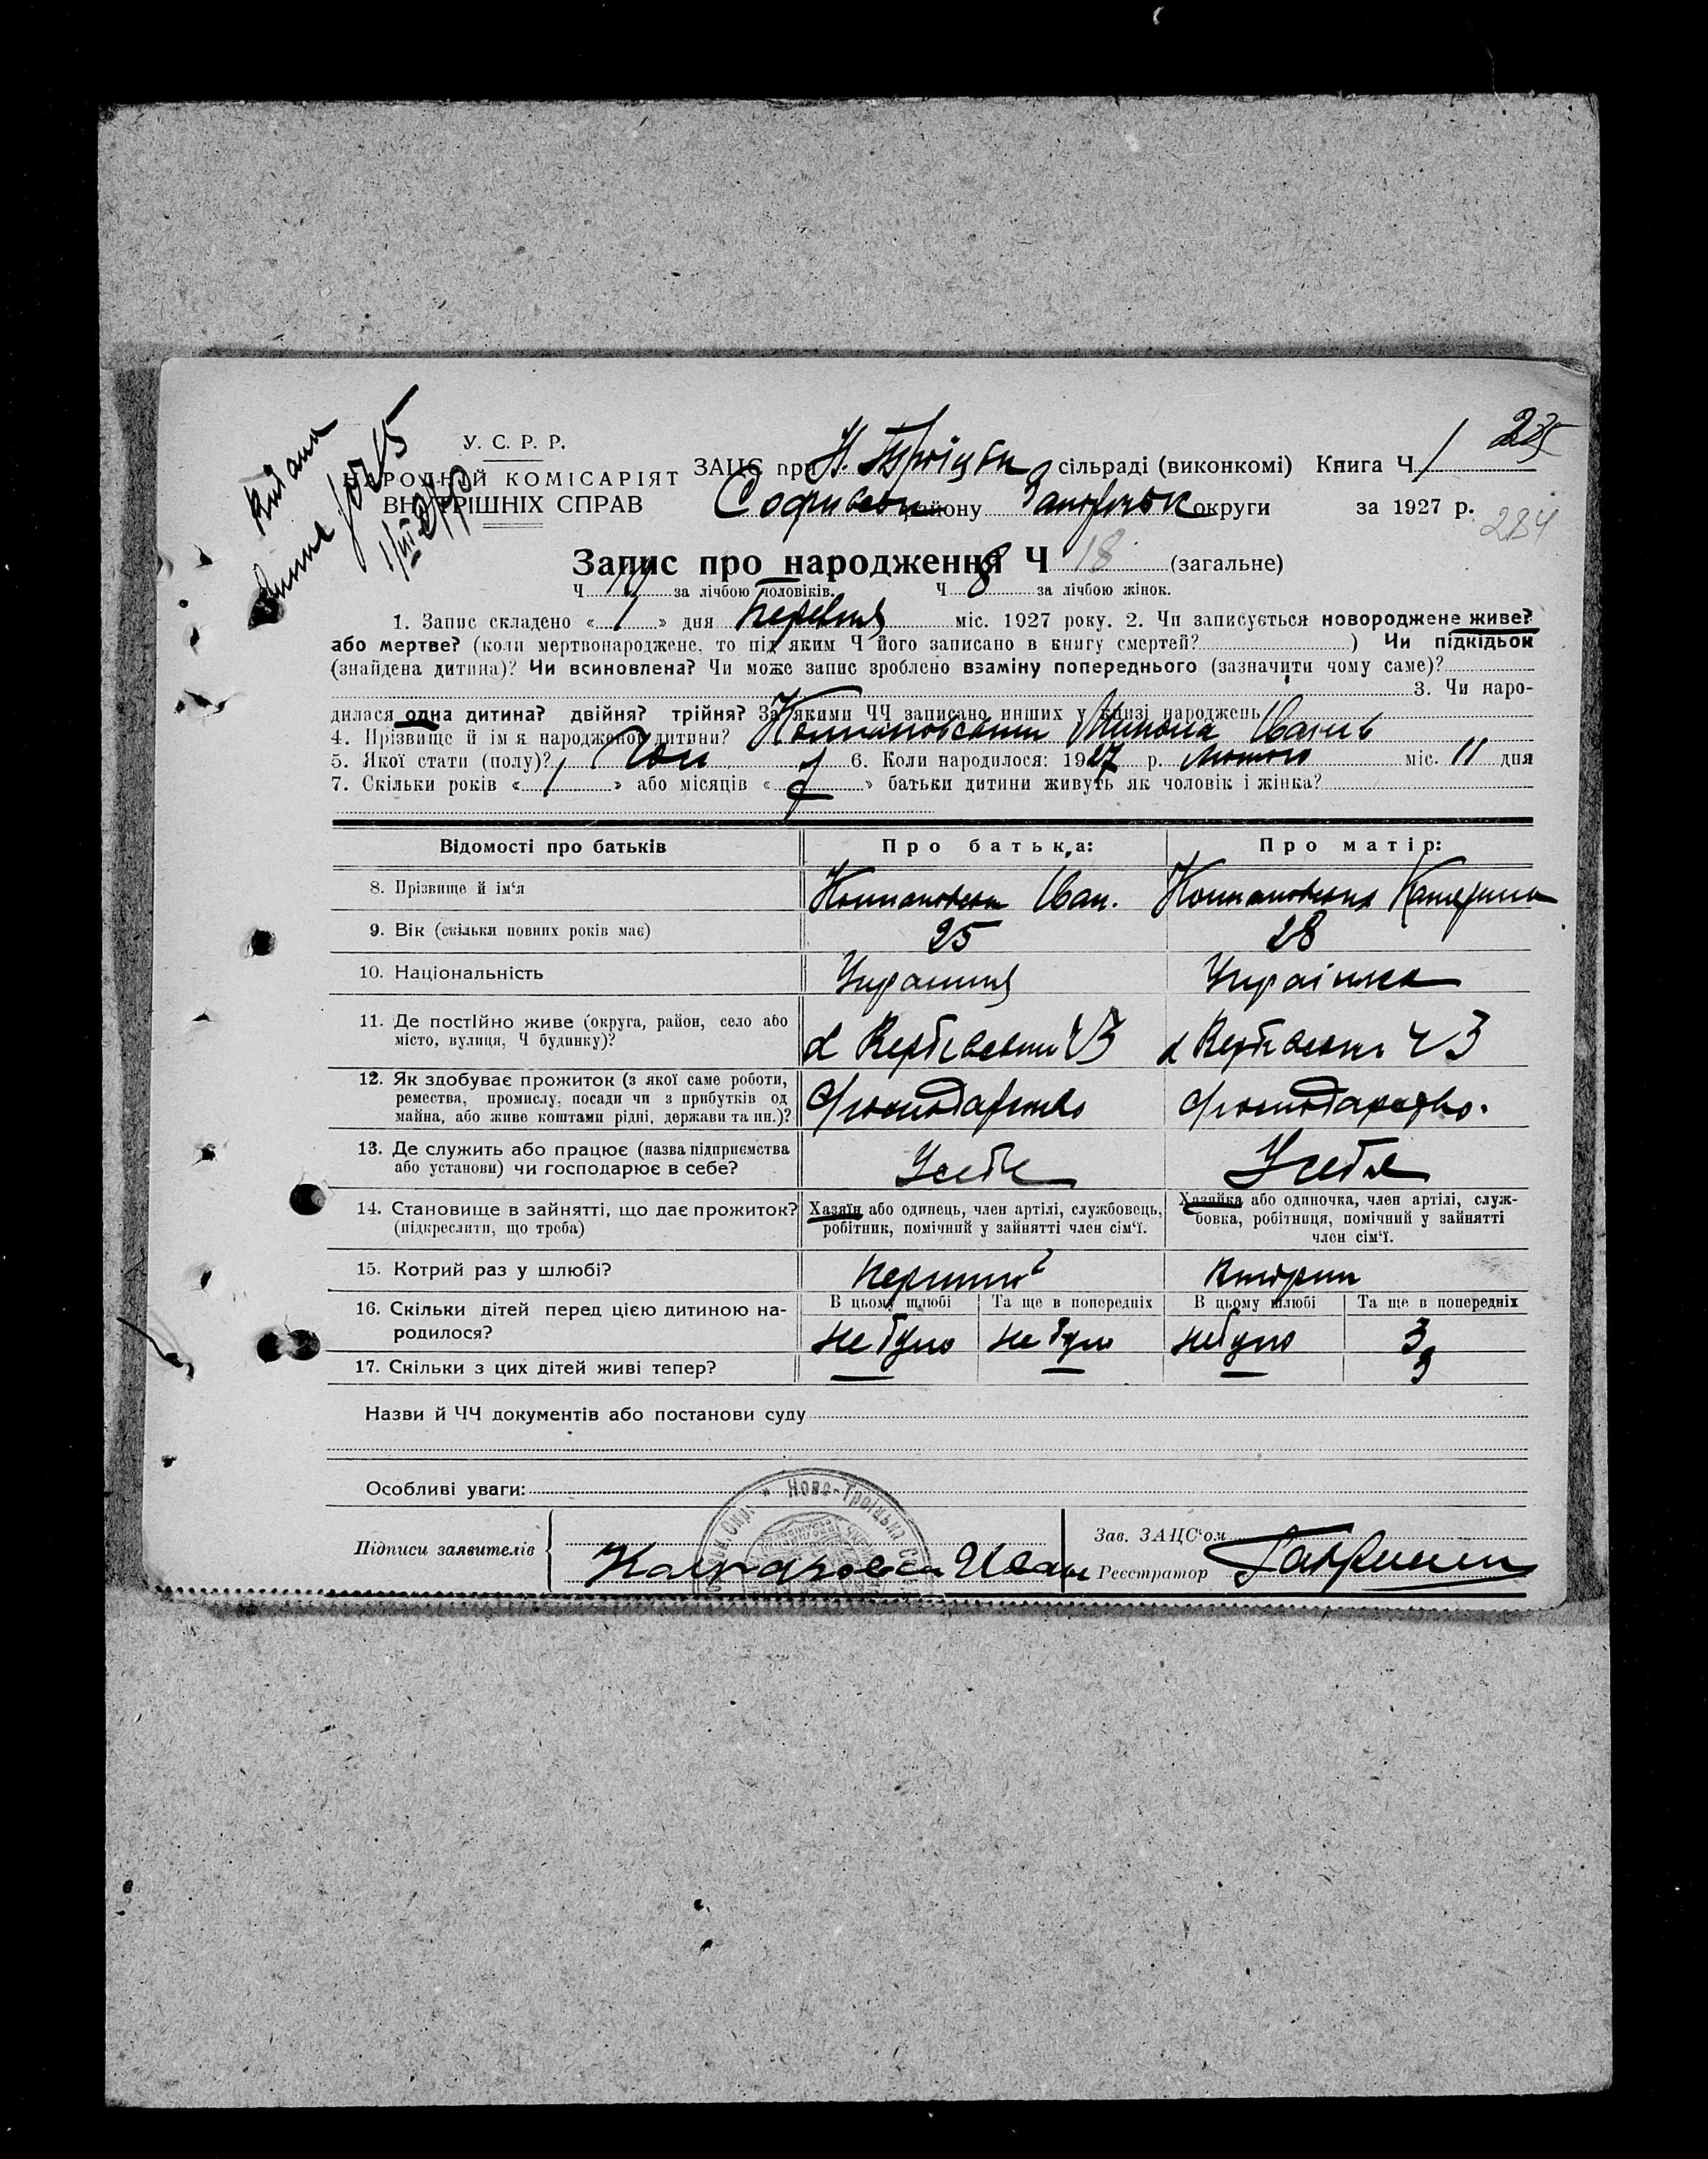 235
У. С. Р. Р.
НАРОДНІЙ КОМІСАРІЯТ
ВНУТРІШНІХ СПРАВ
ЗАЦС при Н. Троіцькій сільраді (виконкомі) Книга Ч 1
району округи за 1927 р.
234
Запис про народження Ч 18 (загальне)
Ч за лічбою чоловіків. Ч 8 за лічбою жінок.
1. Запис складено « 1 » дня Березня міс. 1927 року. 2. Чи записується новороджене живе?
або мертве? (коли мертвонароджене, то під яким Ч його записано в книгу смертей? ) Чи підкідьок
(знайдена дитина)? Чи всиновлена? Чи може запис зроблено взаміну попереднього (зазначити чому саме)?
3. Чи наро-
дилася одна дитина? двійня? трійня? За якими ЧЧ записано инших у книзі народжень
4. Прізвище й ім'я народженої дитини?
5. Якої стати (полу)? Чол 6. Коли народилося: 1927 р. Лютого міс. 11 дня
7. Скільки років « 1 » або місяців « » батьки дитини живуть як чоловік і жінка?
Відомості про батьків Про батька: Про матір:
8. Прізвище й ім'я Іван. Катерина
9. Вік (скільки повних років має) 25 28
10. Національність Українця Українка
11. Де постійно живе (округа, район, село або
місто, вулиця, Ч будинку)? Ч 3 Ч 3
12. Як здобуває прожиток (з якої саме роботи,
ремества, промислу, посади чи з прибутків од
майна, або живе коштами рідні, держави та ин.)?
13. Де служить або працює (назва підприємства
або установи) чи господарює в себе? У себе У себе
14. Становище в зайнятті, що дає прожиток?
(підкреслити, що треба)
Хазяїн або одинець, член артілі, службовець,
робітник, помічний у зайнятті член сім'ї.
Хазяйка або одиночка, член артілі, служ-
бовка, робітниця, помічний у зайнятті
член сім'ї.
15. Котрий раз у шлюбі? перший второй
16. Скільки дітей перед цією дитиною на-
родилося?
В цьому шлюбі Та ще в попередніх В цьому шлюбі Та ще в попередніх
не було не було не було 3
17. Скільки з цих дітей живі тепер? — — — 3
Назви й ЧЧ документів або постанови суду
Особливі уваги:
Ново-Троіцька
Підписи заявителів Иван
Зав. ЗАЦС'ом
Реєстратор